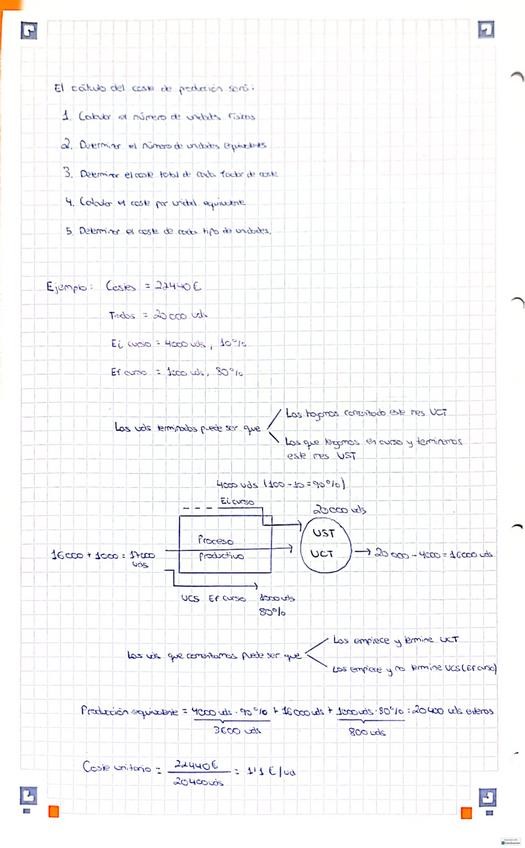 El cálculo del coste de producción será:
1. Calcular el número de unidades físicas
2. Determinar el número de unidades equivalentes
3. Determinar el coste total de cada factor de coste
4. Calcular el coste por unidad equivalente
5. Determinar el coste de cada tipo de unidades.
Ejemplo: Costes = 22440 €
Tndas = 20000 uds
Ei curso = 4000 uds, 10%
Ef curso = 1000 uds, 80%
Las uds terminadas puede ser que
Las hayamos comenzado este mes UCT
Las que tengamos en curso y terminemos
este mes UST
4000 uds (100-10=90%)
Ei curso
20000 uds
Proceso
productivo
UST
UCT
16000 + 1000 = 17000
uds
20000 - 4000 = 16000 uds
UCS Ef curso 1000 uds
80%
Las uds que comenzamos puede ser que
Las empiece y termine UCT
Las empiece y no termine UCS (Ef curso)
Producción equivalente = 4000 uds · 90% + 16000 uds + 1000 uds · 80% = 20400 uds enteras
3600 uds
800 uds
Coste unitario = 22440 € / 20400 uds = 1'1 €/ud